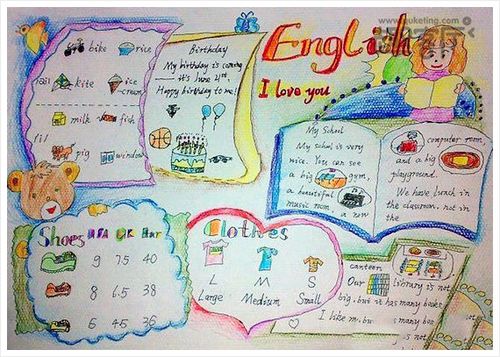 www.quketing.com
English
I love you
bike rice
[ai] kite ice
cream
milk fish
[i]
pig window
Birthday
My birthday is coming
it's June 4th.
Happy birthday to me!
My School
My school is very
nice. You can see
a big gym,
a beautiful
music room
a new
computer room,
and a big
playground.
We have lunch in
the classroom, not in
the
canteen
Our library is not
big, but it has many books
I like m
many boo
is not
Shoes USA UK Eur
9 7.5 40
8 6.5 38
6 4.5 36
Clothes
L M S
Large Medium Small